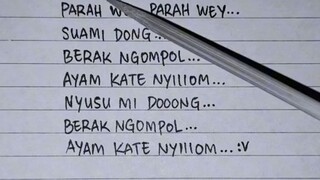 PARAH WEY PARAH WEY...
SUAMI DONG...
BERAK NGOMPOL...
AYAM KATE NYIIIOM...
NYUSU MI DOOONG...
BERAK NGOMPOL...
AYAM KATE NYIIIOM...:V